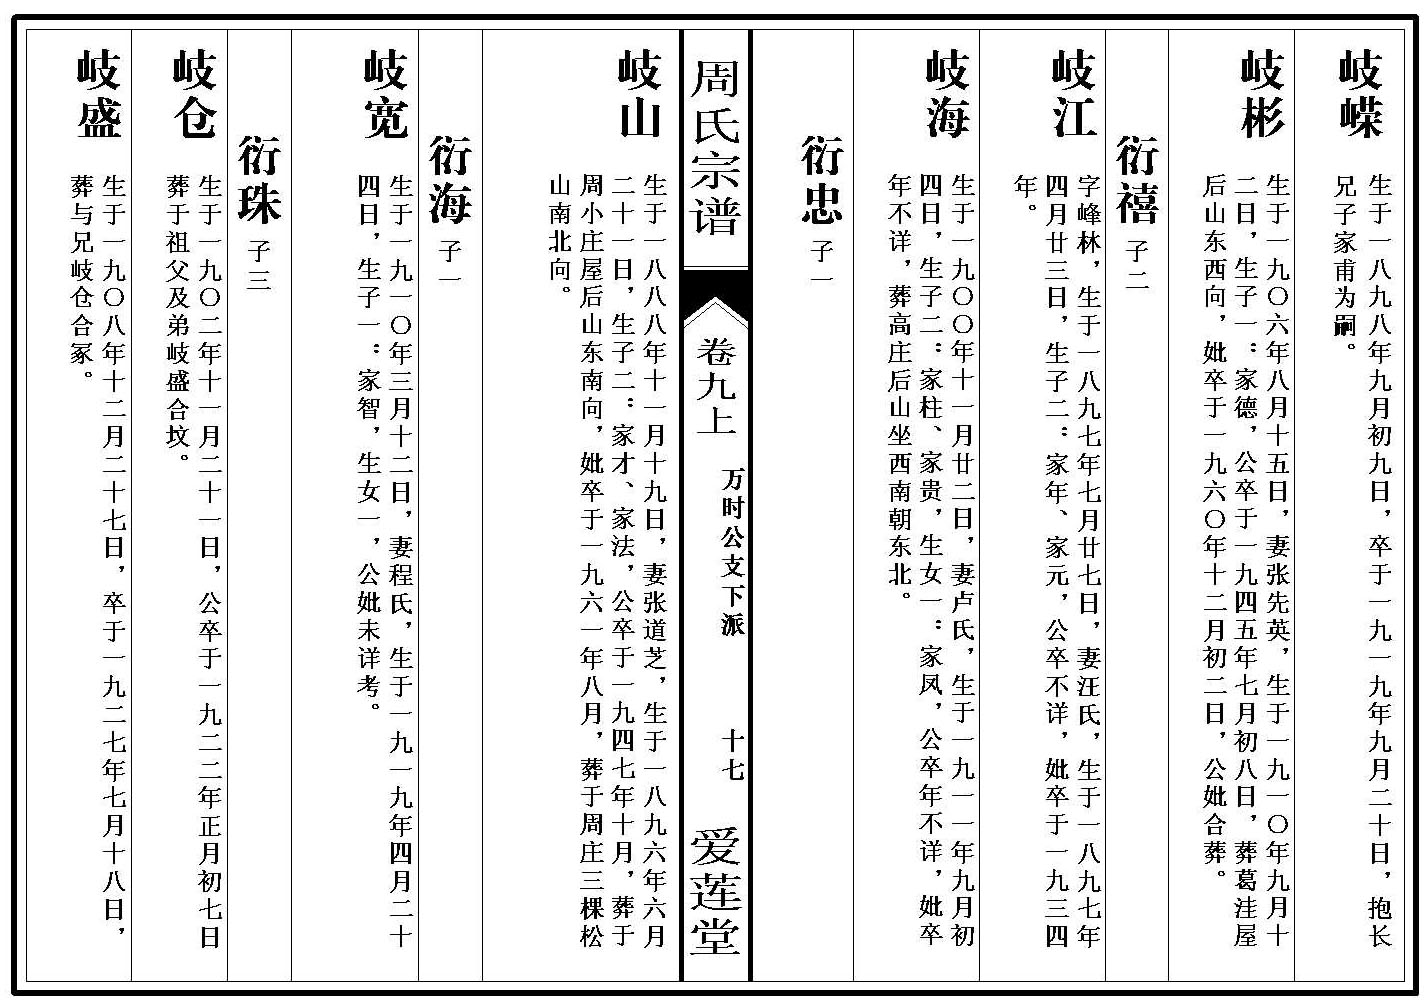 岐嵘
生于一八九八年九月初九日，卒于一九一九年九月二十日，抱长
兄子家甫为嗣。
岐彬
生于一九〇六年八月十五日，妻张先英，生于一九一〇年九月十
二日，生子一：家德，公卒于一九四五年七月初八日，葬葛洼屋
后山东西向，妣卒于一九六〇年十二月初二日，公妣合葬。
衍禧 子二
岐江
字峰林，生于一八九七年七月廿七日，妻汪氏，生于一八九七年
四月廿三日，生子二：家年、家元，公卒不详，妣卒于一九三四
年。
岐海
生于一九〇〇年十一月廿二日，妻卢氏，生于一九一一年九月初
四日，生子二：家柱、家贵，生女一：家凤，公卒年不详，妣卒
年不详，葬高庄后山坐西南朝东北。
衍忠 子一
周氏宗谱
卷九上
万时公支下派
十七
爱莲堂
岐山
生于一八八八年十一月十九日，妻张道芝，生于一八九六年六月
二十一日，生子二：家才、家法，公卒于一九四七年十月，葬于
周小庄屋后山东南向，妣卒于一九六一年八月，葬于周庄三棵松
山南北向。
衍海 子一
岐宽
生于一九一〇年三月十二日，妻程氏，生于一九一九年四月二十
四日，生子一：家智，生女一，公妣未详考。
衍珠 子三
岐仓
生于一九〇二年十一月二十一日，公卒于一九二二年正月初七日
葬于祖父及弟岐盛合坟。
岐盛
生于一九〇八年十二月二十七日，卒于一九二七年七月十八日，
葬与兄岐仓合冢。